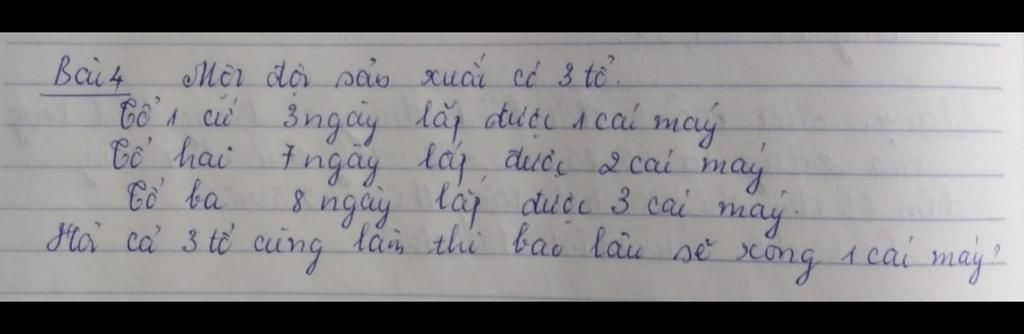 Bài 4 Một đội sản xuất có 3 tổ.
Tổ 1 cứ 3 ngày lắp được 1 cái máy
Tổ hai 7 ngày lắp được 2 cái máy
Tổ ba 8 ngày lắp được 3 cái máy.
Hỏi cả 3 tổ cùng làm thì bao lâu sẽ xong 1 cái máy?